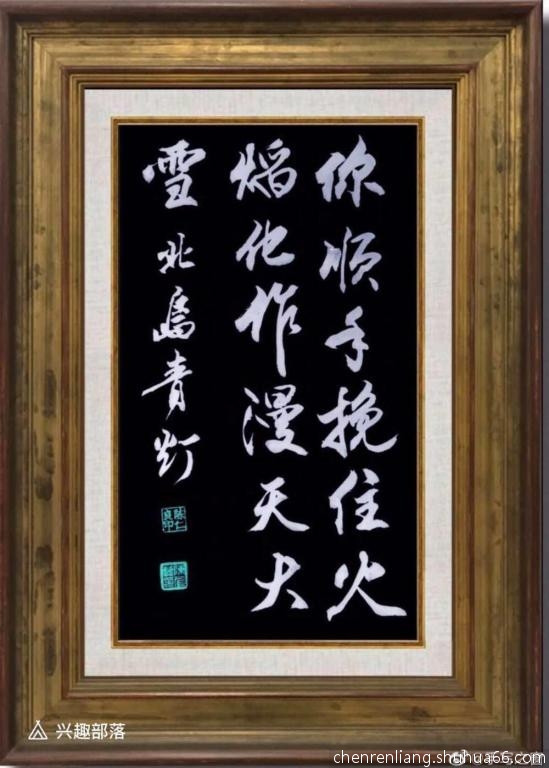 你顺手挽住火
焰化作漫天大
雪 北岛青灯
兴趣部落
chenrenliang.shuhua66.com